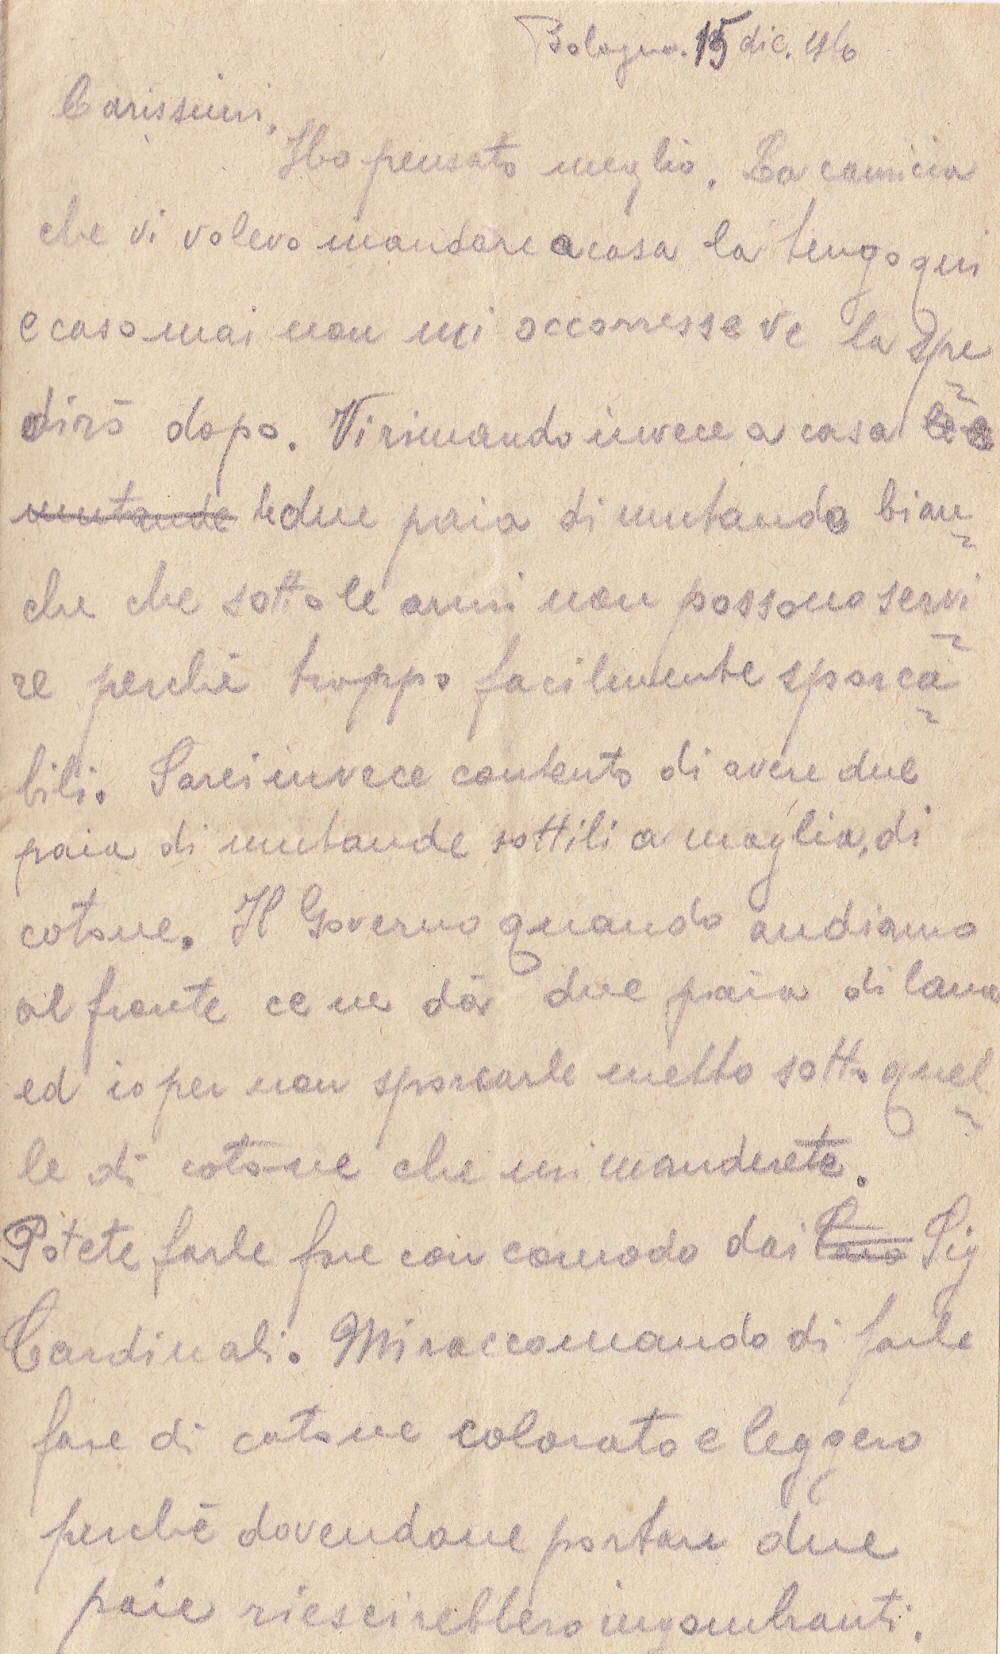 Bologna. 15 dic. 916
Carissimi,
Ho pensato meglio. La camicia
che vi volevo mandare a casa la tengo qui
e caso mai non mi occorresse ve la spe
dirò dopo. Vi rimando invece a casa le
mutande le due paia di mutande bian
che che sotto le armi non possono servi
re perchè troppo facilmente sporca
bili. Sarei invece contento di avere due
paia di mutande sottili a maglia, di
cotone. Il Governo quando andiamo
al fronte ce ne dà due paia di lana
ed io per non sporcarle metto sotto quel
le di cotone che mi manderete.
Potete farle fare con comodo dai Sig
Cardinali. Mi raccomando di farle
fare di cotone colorato e leggero
perchè dovendone portare due
paie riescirebbero ingombranti.